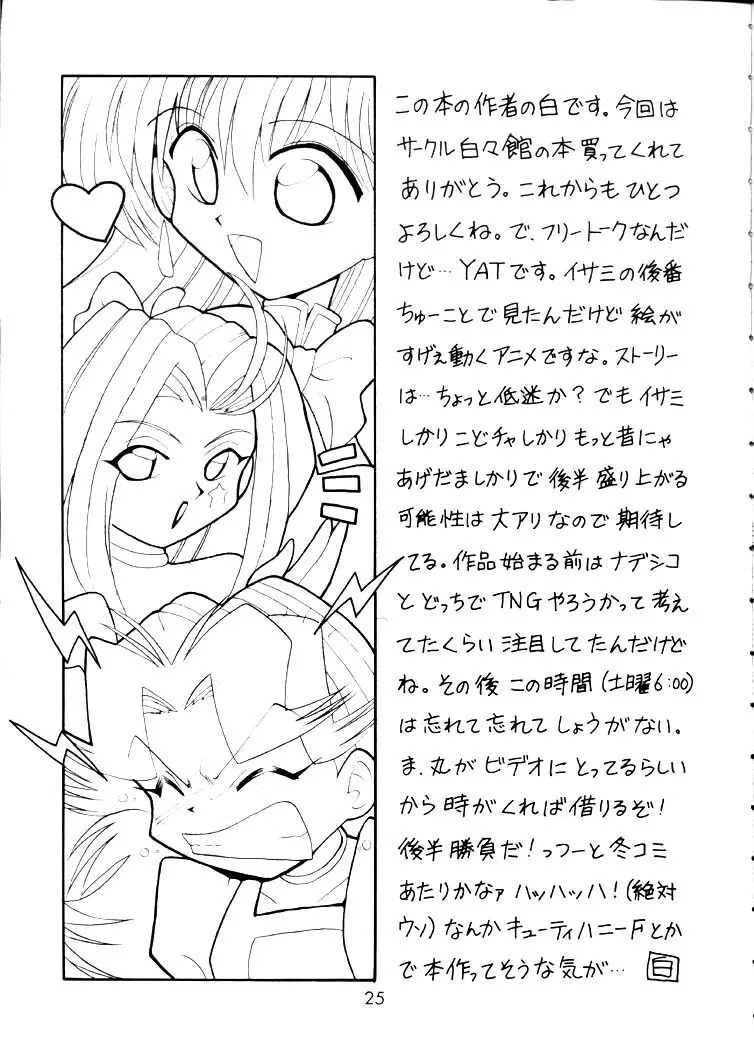 この本の作者の白です。今回は
サークル白々館の本買ってくれて
ありがとう。これからもひとつ
よろしくね。で、フリートークなんだ
けど…YATです。イサミの後番
ちゅーことで見たんだけど絵が
すげぇ動くアニメですな。ストーリー
は…ちょっと低迷か?でもイサミ
しかりこどチャしかりもっと昔にゃ
あげだましかりで後半盛り上がる
可能性は大アリなので期待し
てる。作品始まる前はナデシコ
とどっちでTNGやろうかって考え
てたくらい注目してたんだけど
ね。その後この時間(土曜6:00)
は忘れて忘れてしょうがない。
ま、丸がビデオにとってるらしい
から時がくれば借りるぞ!
後半勝負だ!っつーと冬コミ
あたりかなァハッハッハ!(絶対
ウソ)なんかキューティハニーFとか
で本作ってそうな気が…白
25